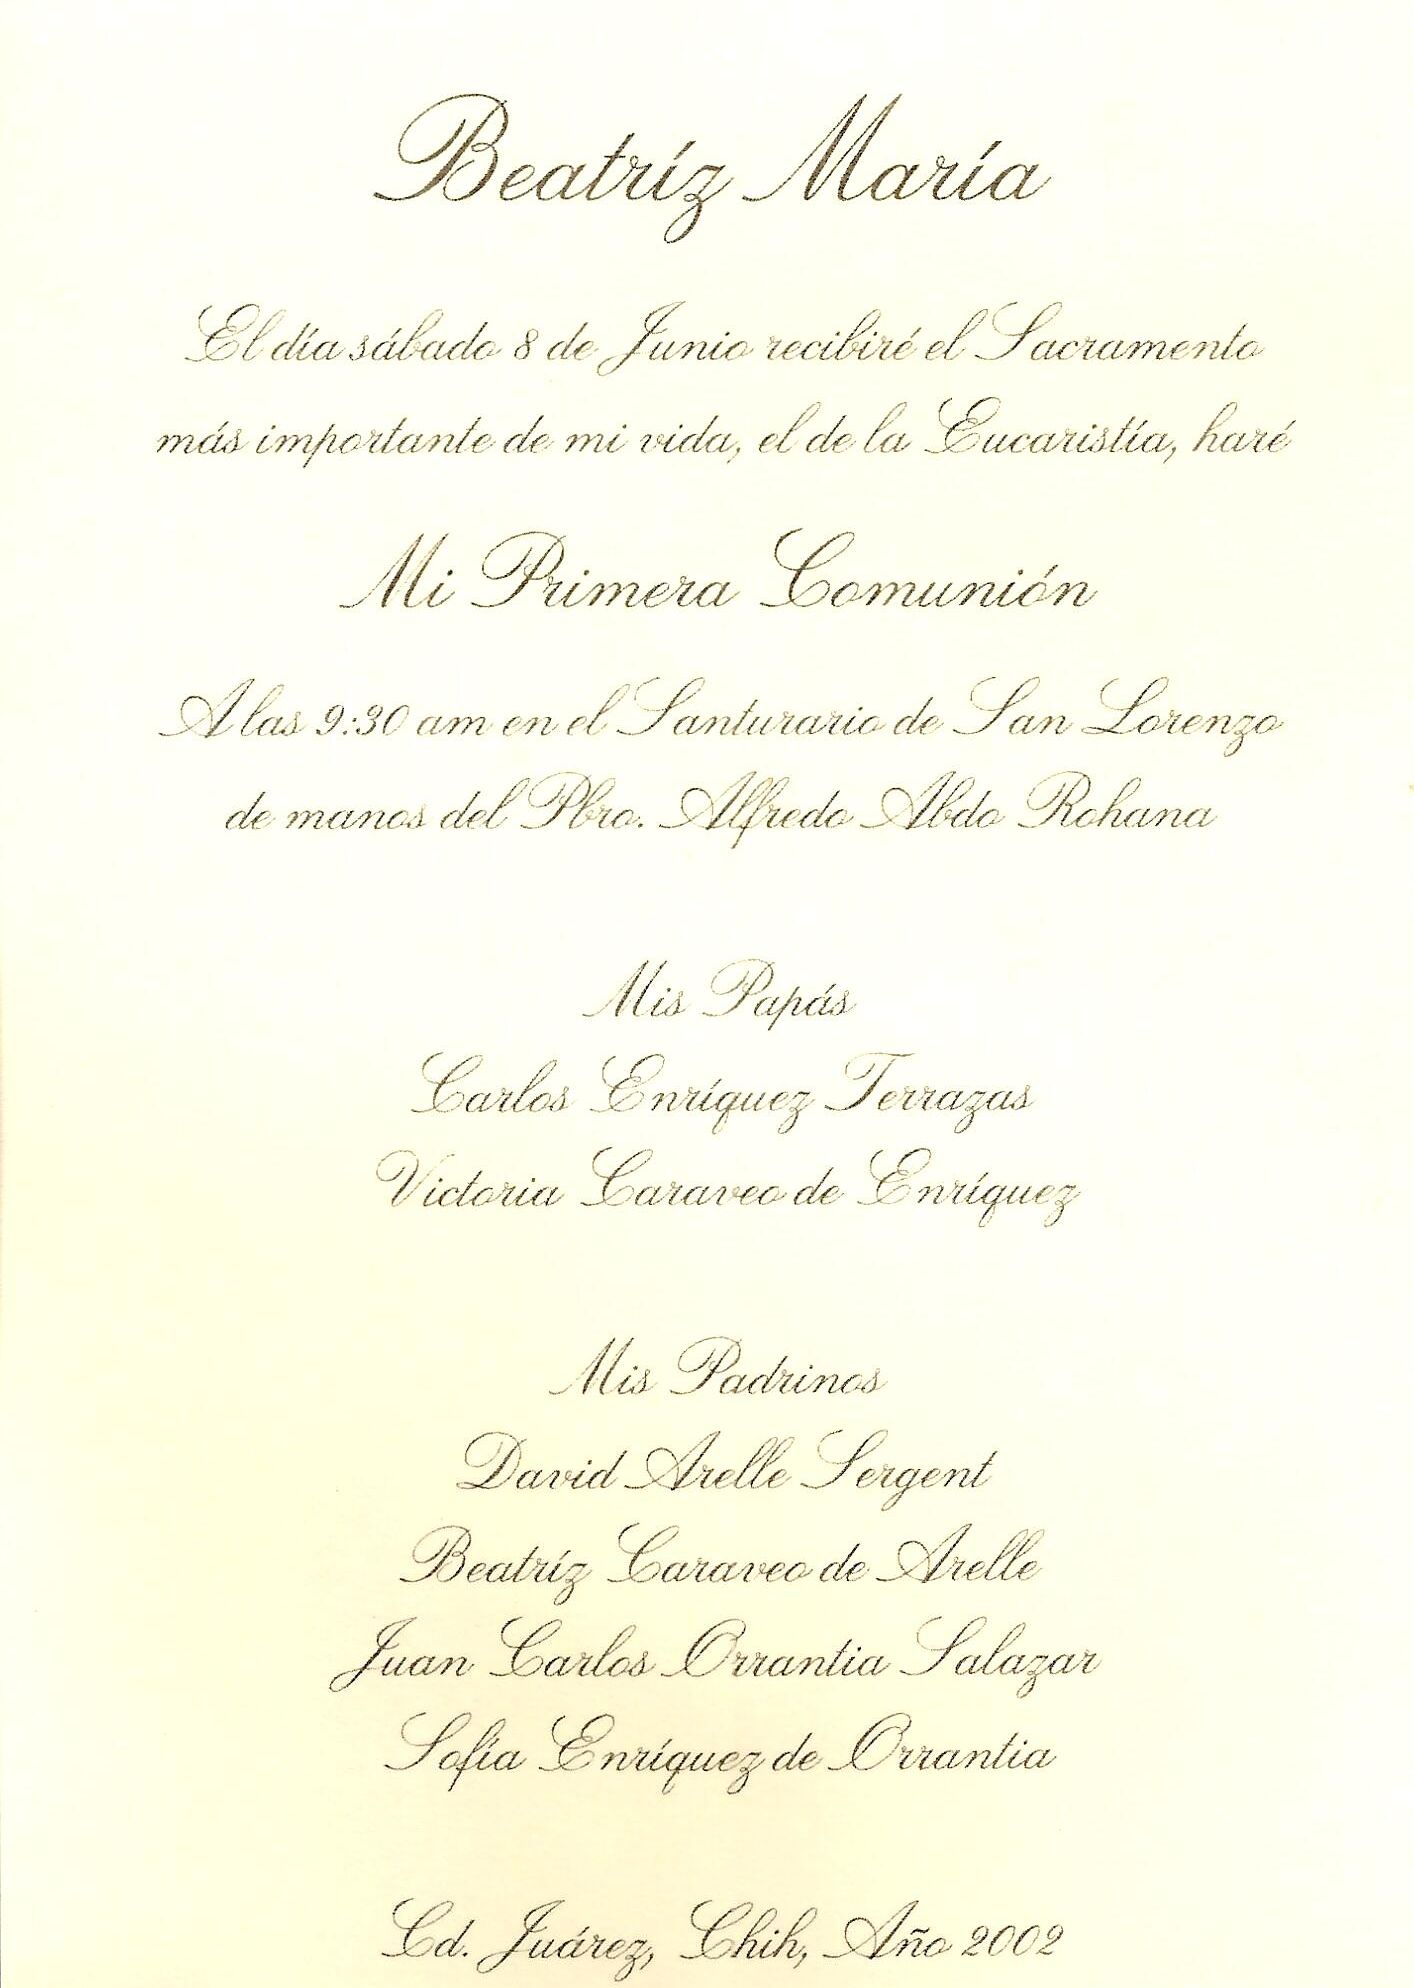 Beatríz María
El día sábado 8 de Junio recibiré el Sacramento
más importante de mi vida, el de la Eucaristía, haré
Mi Primera Comunión
A las 9:30 am en el Santurario de San Lorenzo
de manos del Pbro. Alfredo Abdo Rohana
Mis Papás
Carlos Enríquez Terrazas
Victoria Caraveo de Enríquez
Mis Padrinos
David Arelle Sergent
Beatríz Caraveo de Arelle
Juan Carlos Orrantia Salazar
Sofía Enríquez de Orrantia
Cd. Juárez, Chih, Año 2002